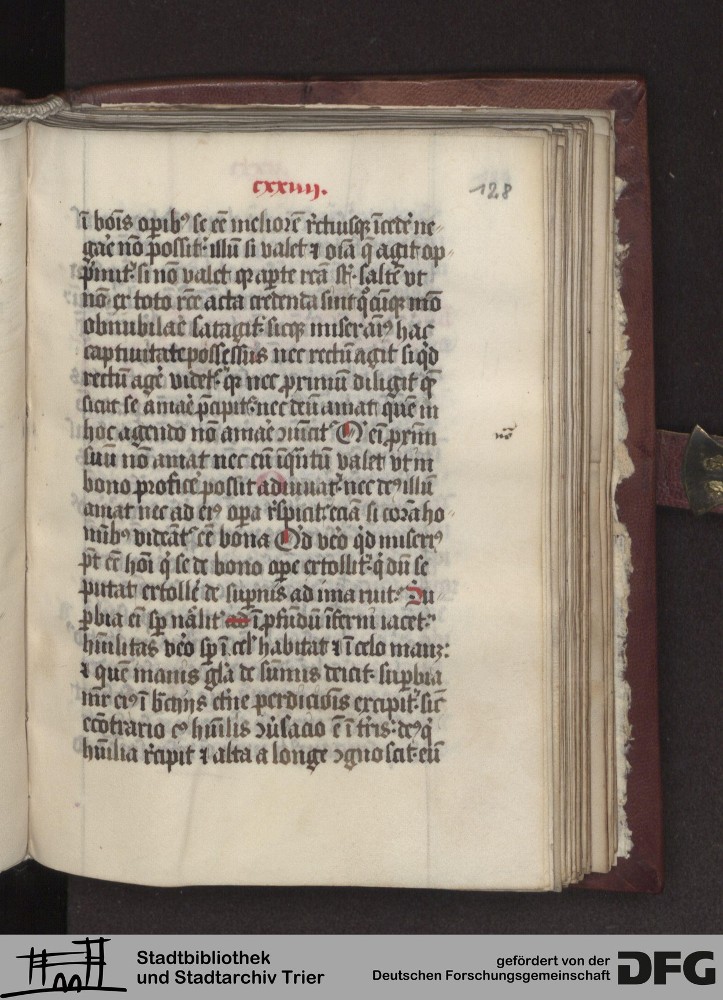 cxxiiij.
128
ī boīs oꝑibꝰ se eē meliorē r̄ctiusqꝫ īcede ne⸗
gare nō possit· illū si valet ⁊ oīa q̄ agit op⸗
si nō valet ꝙ aꝑte saltē vt
nō ex toto acta credenda sint mō
obnubilare satagit· sicqꝫ miser hac
captiuitate possessus nec rectū agit si qd
rectū agē videt· ꝙ nec primū diligit
sicut se amare p̄cipit· nec deū amat quē in
hoc agendo nō amare ↄuīcit Qͥ eī ꝓxīm
suū nō amat nec eū īquātū valet vt in
bono proficē possit adiuuat· nec deꝰ illū
amat nec ad eiꝰ oꝑa r̄spicit· eciā si corā ho⸗
mībꝰ videāt eē bona Qd v̄o qd
pt eē hōi qͥ se de bono oꝑe extollit· qͥ dū se
putat extollē de suꝑnis ad ima ruit· Su
ꝑbia eī sꝑ ī ꝓfundū īferni iacet·
hūilitas v̄o sꝑ ī cel habitat ⁊ ī celo manꝫ:
⁊ quē inanis gl̄a de sūmis deicit· suꝑbia
ꝑdicioīs excipit· sic
ecōtrario hūilis ↄūsacio ē ī t̄ris· deꝰ qͥ
hūilia r̄cipit ⁊ alta a longe ↄgnoscit· eū
Stadtbibliothek
und Stadtarchiv Trier
gefördert von der
Deutschen Forschungsgemeinschaft
DFG